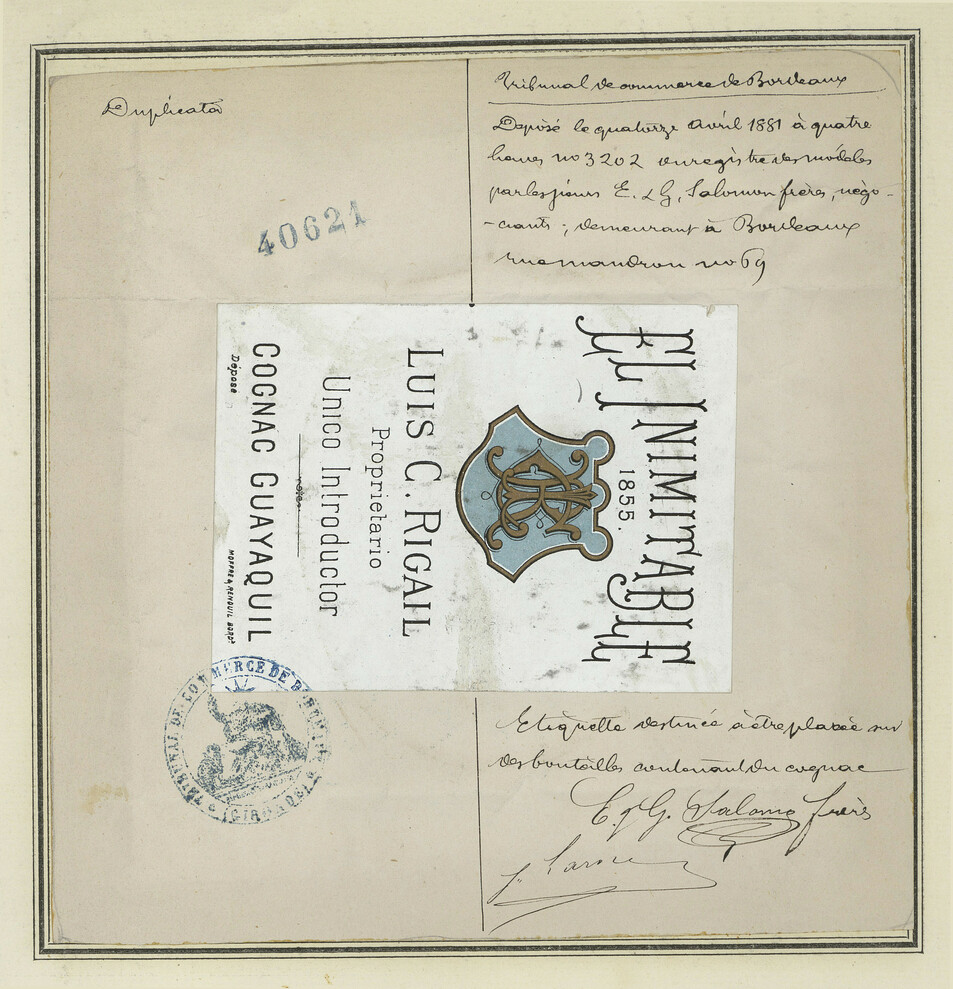 Duplicata
40621
Tribunal de commerce de Bordeaux
Déposé le quatorze avril 1881 à quatre
heures no 3202 enregistre des modèles
par les sieurs E. & G. Salomon frères, négo-
-ciants ; demeurant à Bordeaux
rue mandron no 69
EL INIMITABLE
1855.
LUIS C. RIGAIL
Proprietario
Unico Introductor
COGNAC GUAYAQUIL
Déposé
MOFFRE & RENOUIL BORDX
TRIBUNAL DE COMMERCE DE BORDEAUX
(GIRONDE)
Etiquette destinée à être placée sur
des bouteilles contenant du cognac
E. & G. Salomon frères